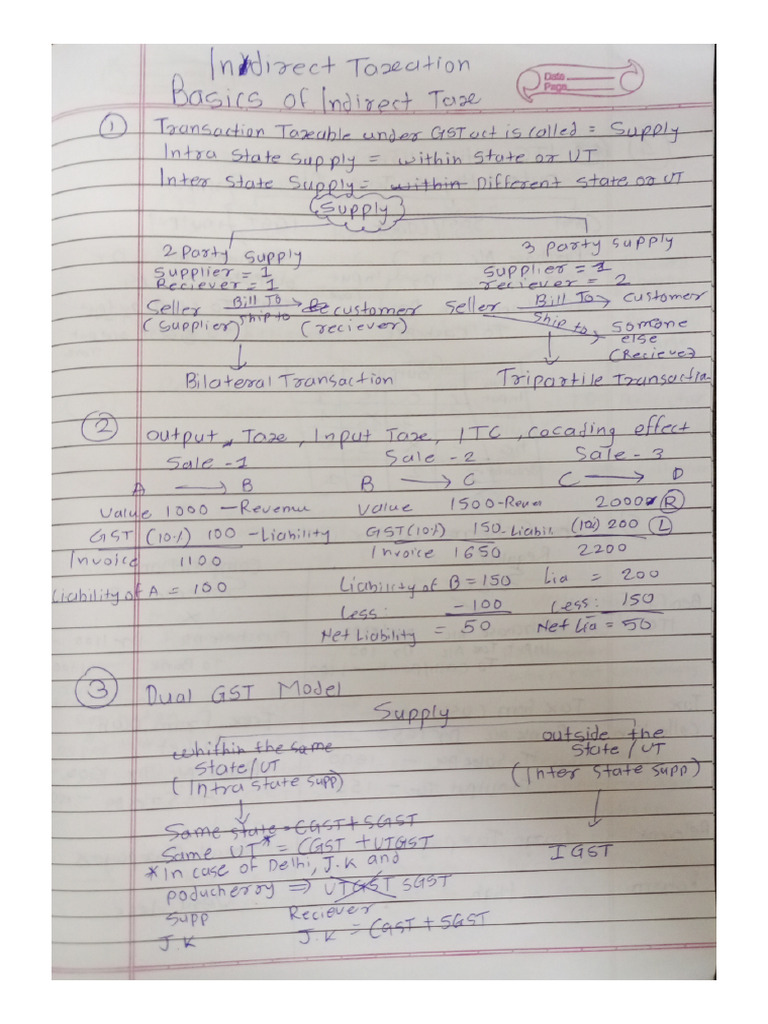 Indirect Taxation
Date
Page
Basics of Indirect Taxe
① Transaction Taxeable under GST act is called = Supply
Intra State Supply = within State or UT
Inter State Supply = within Different state or UT
Supply
2 Party Supply
Supplier = 1
Reciever = 1
Seller Bill To customer
(Supplier) Ship to (reciever)
Bilateral Transaction
3 party supply
Supplier = 1
reciever = 2
Seller Bill To customer
Ship to Somone
else
(Reciever)
Tripartile Transactia
② output Taxe, Input Taxe, ITC, cocading effect
Sale - 1 Sale - 2 Sale - 3
A → B B → C C → D
Value 1000 - Revenue Value 1500 - Reven 2000 Ⓡ
GST (10%) 100 - Liability GST (10%) 150 - Liabili (10%) 200 Ⓛ
Invoice 1100 Invoice 1650 2200
Liability of A = 100 Liability of B = 150 Lia = 200
Less: - 100 Less: 150
Net Liability = 50 Net Lia = 50
③ Dual GST Model
Supply
whithin the same
State/UT
(Intra State supp)
outside the
State/UT
(Inter State supp)
Same state = CGST + SGST
Same UT* = CGST + UTGST
IGST
* In case of Delhi, J.K and
poducherry ⇒ UTGST SGST
Supp Reciever
J.K J.K = CGST + SGST